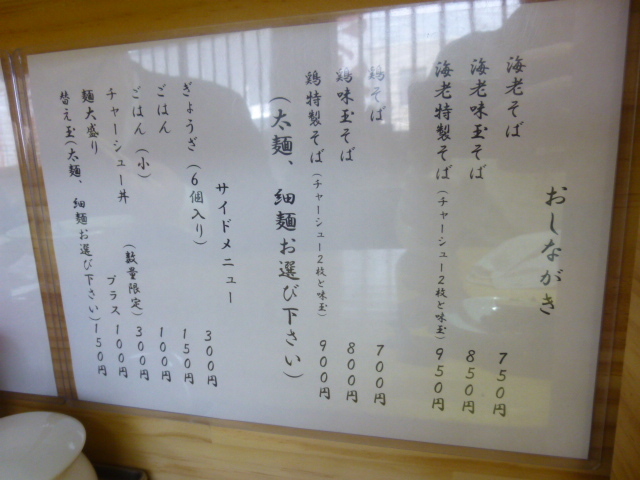 おしながき
海老そば 750円
海老味玉そば 850円
海老特製そば(チャーシュー2枚と味玉) 950円
鶏そば 700円
鶏味玉そば 800円
鶏特製そば(チャーシュー2枚と味玉) 900円
(太麺、細麺お選び下さい)
サイドメニュー
ぎょうざ(6個入り) 300円
ごはん 150円
ごはん(小) 100円
チャーシュー丼 (数量限定) 300円
麺大盛り プラス100円
替え玉(太麺、細麺お選び下さい) 150円